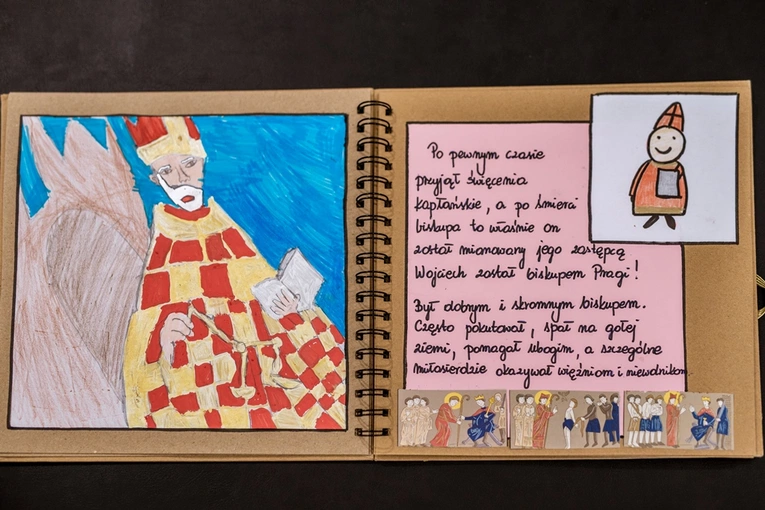 Po pewnym czasie
przyjął święcenia
kapłańskie, a po śmierci
biskupa to właśnie on
został mianowany jego zastępcą
Wojciech został biskupem Pragi!
Był dobrym i skromnym biskupem.
Często pokutował, spał na gołej
ziemi, pomagał ubogim, a szczególne
miłosierdzie okazywał więźniom i niewolnikom.